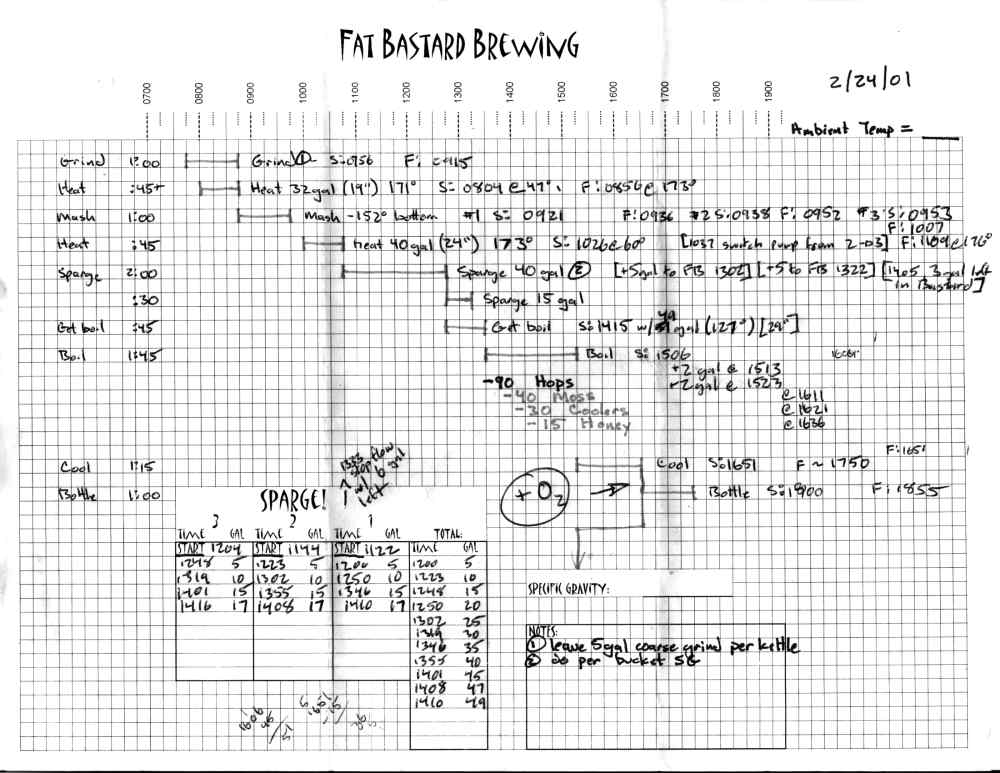 FAT BASTARD BREWING
2/24/01
0700 0800 0900 1000 1100 1200 1300 1400 1500 1600 1700 1800 1900
Ambient Temp =
Grind 1:00 Grind ① S: 0756 F: 0915
Heat :45+ Heat 32 gal (19") 171° S: 0804 @ 47° F: 0856 @ 173°
Mash 1:00 Mash -152° bottom #1 S: 0921 F: 0936 #2 S: 0938 F: 0952 #3 S: 0953
F: 1007
Heat :45 Heat 40 gal (24") 173° S: 1026 @ 60° [1037 switch pump from 2→3] F: 1109 @ 176°
Sparge 2:00 Sparge 40 gal ② [+5gal to FB 1302] [+5 to FB 1322] [1405 3 gal left
in Bastard]
:30 Sparge 15 gal
Get boil :45 Get boil S: 1415 w/ 49 gal (127°) [29"]
Boil 1:45 Boil S: 1506
+2 gal @ 1513
+2 gal @ 1523
-90 Hops
-40 Moss @ 1611
-30 Coolers @ 1621
-15 Honey @ 1636
F: 1651
Cool 1:15 Cool S: 1651 F ~ 1750
Bottle 1:00 Bottle S: 1800 F: 1855
+ O2
1333
stop flow
w/ 6 gal
left
SPARGE!
3 2 1
TIME GAL TIME GAL TIME GAL TOTAL:
START 1204 START 1144 START 1122 TIME GAL
1248 5 1223 5 1200 5 1200 5
1319 10 1302 10 1250 10 1223 10
1401 15 1355 15 1346 15 1248 15
1416 17 1408 17 1410 17 1250 20
1302 25
1319 30
1346 35
1355 40
1401 45
1408 47
1410 49
SPECIFIC GRAVITY:
NOTES:
① leave 5gal coarse grind per kettle
② do per bucket SG